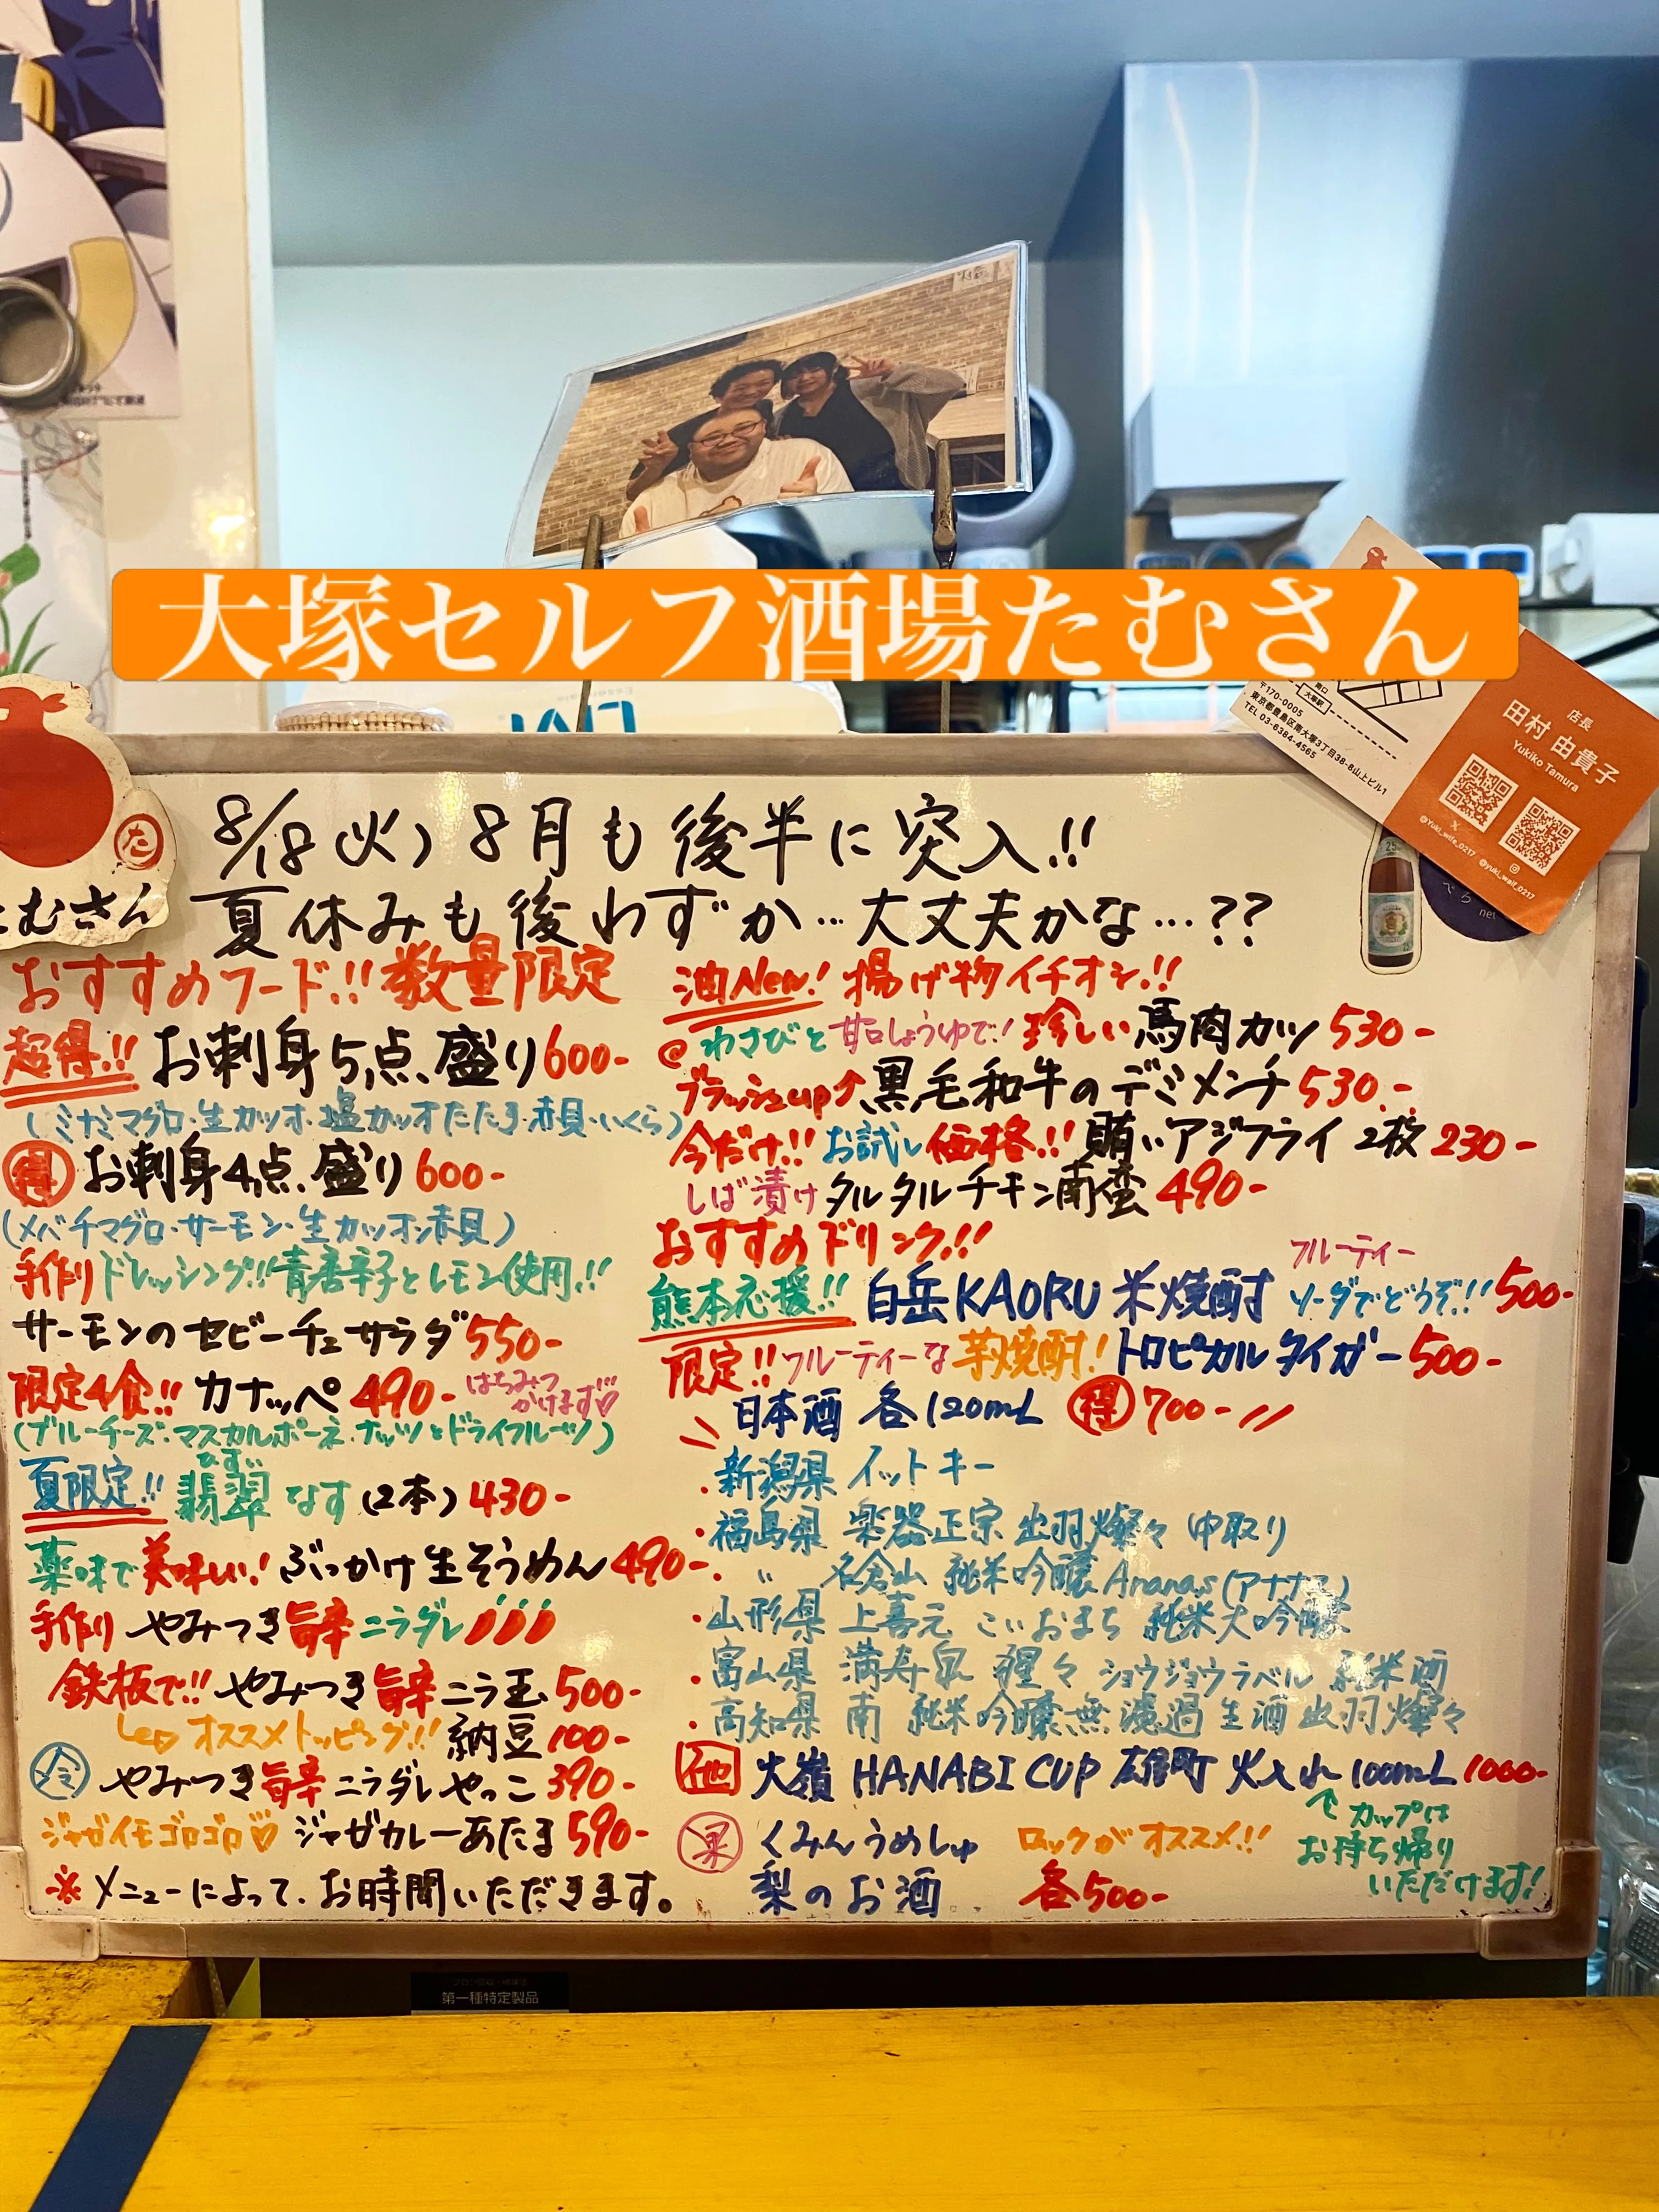 大塚セルフ酒場たむさん
〒170-0005
東京都豊島区南大塚3丁目38-8山上ビル1
TEL 03-6384-4565
店長
田村 由貴子
Yukiko Tamura
@Yuki_wife_0217
@yuki_waif_0217
たむさん
8/18(火) 8月も後半に突入!!
夏休みも後わずか…大丈夫かな…??
おすすめフード!!数量限定
超得!! お刺身5点盛り600-
(ミナミマグロ・生カツオ・塩カツオたたき・赤貝・いくら)
得 お刺身4点盛り600-
(メバチマグロ・サーモン・生カツオ・赤貝)
手作りドレッシング!!青唐辛子とレモン使用!!
サーモンのセビーチェサラダ550-
限定4食!! カナッペ490- はちみつかけます♡
(ブルーチーズ・マスカルポーネ・ナッツとドライフルーツ)
ひすい
夏限定!! 翡翠なす(2本)430-
薬味で美味しい! ぶっかけ生そうめん490-
手作り やみつき旨辛ニラダレ
鉄板で!! やみつき旨辛ニラ玉500-
オススメトッピング!! 納豆100-
冷 やみつき旨辛ニラダレやっこ390-
ジャガイモゴロゴロ♡ ジャガカレーあたま590-
※メニューによって、お時間いただきます。
油New! 揚げ物イチオシ!!
@わさびと甘口しょうゆで! 珍しい馬肉カツ530-
ブラッシュup↑黒毛和牛のデミメンチ530-
今だけ!! お試し価格!! 賄いアジフライ2枚230-
しば漬けタルタルチキン南蛮490-
おすすめドリンク!!
フルーティー
熊本応援!! 白岳KAORU 米焼酎 ソーダでどうぞ!!500-
限定!! フルーティーな芋焼酎! トロピカルタイガー500-
日本酒 各120mL 得700-
・新潟県 イットキー
・福島県 楽器正宗 出羽燦々 中取り
・〃 名倉山 純米吟醸 Ananas(アナナス)
・山形県 上喜元 こいおまち 純米大吟醸
・富山県 満寿泉 猩々 ショウジョウラベル 純米酒
・高知県 南 純米吟醸無濾過生酒 出羽燦々
大嶺 HANABI CUP 雄町 火入れ100mL 1000-
↑カップはお持ち帰りいただけます!
果 くみんうめしゅ ロックがオススメ!!
梨のお酒 各500-
第一種特定製品